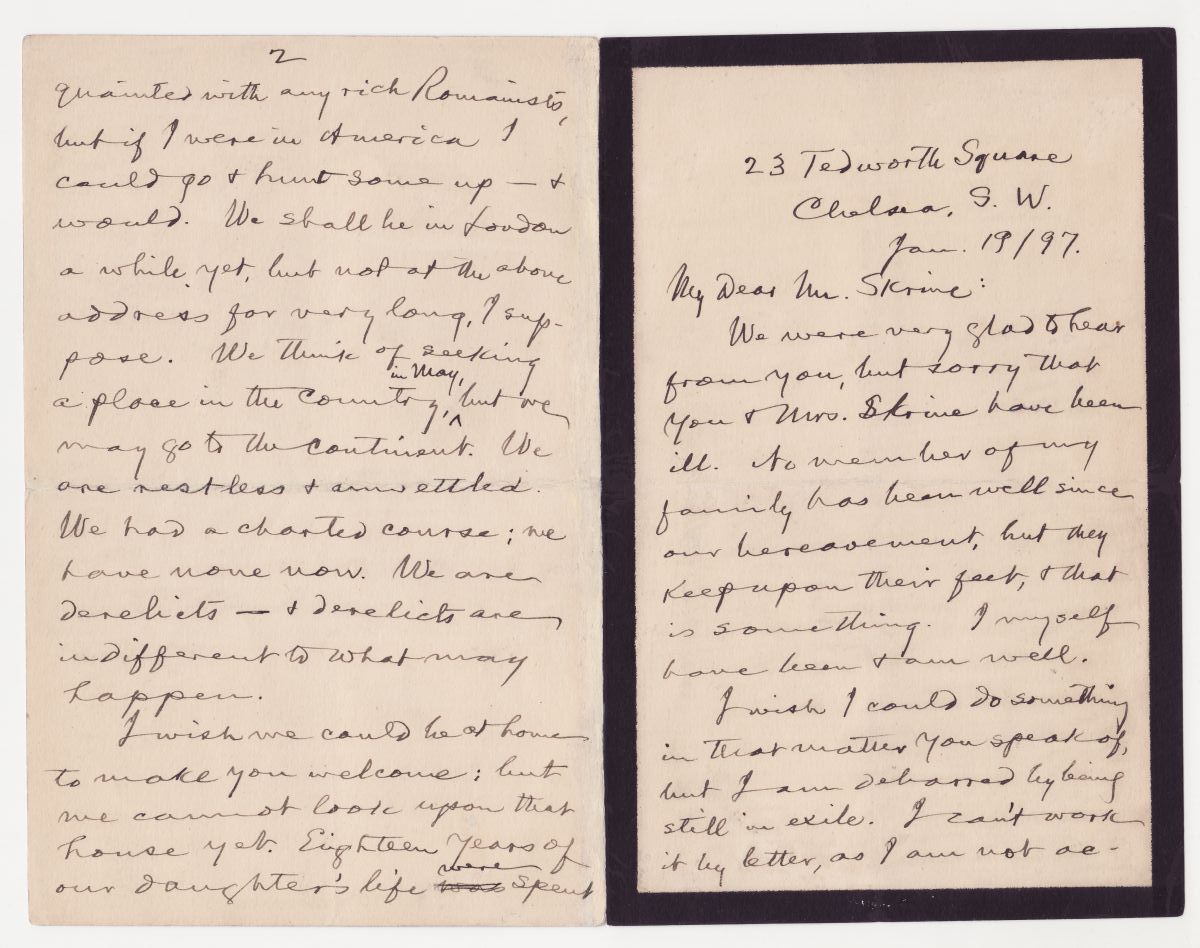 23 Tedworth Square
Chelsea, S. W.
Jan. 19/97.
My Dear Mr. Skrine:
We were very glad to hear
from you, but sorry that
you & Mrs. Skrine have been
ill. No member of my
family has been well since
our bereavement, but they
keep upon their feet, & that
is something. I myself
have been & am well.
I wish I could do something
in that matter you speak of,
but I am debarred by being
still in exile. I can't work
it by letter, as I am not ac-
2
quainted with any rich Romanists,
but if I were in America I
could go & hunt some up — &
would. We shall be in London
a while yet, but not at the above
address for very long, I sup-
pose. We think of seeking
a place in the country, in May, but we
may go to the continent. We
are restless & unsettled.
We had a charted course; we
have none now. We are
derelicts — & derelicts are
indifferent to what may
happen.
I wish we could be at home
to make you welcome; but
we cannot look upon that
house yet. Eighteen years of
our daughter's life was were spent